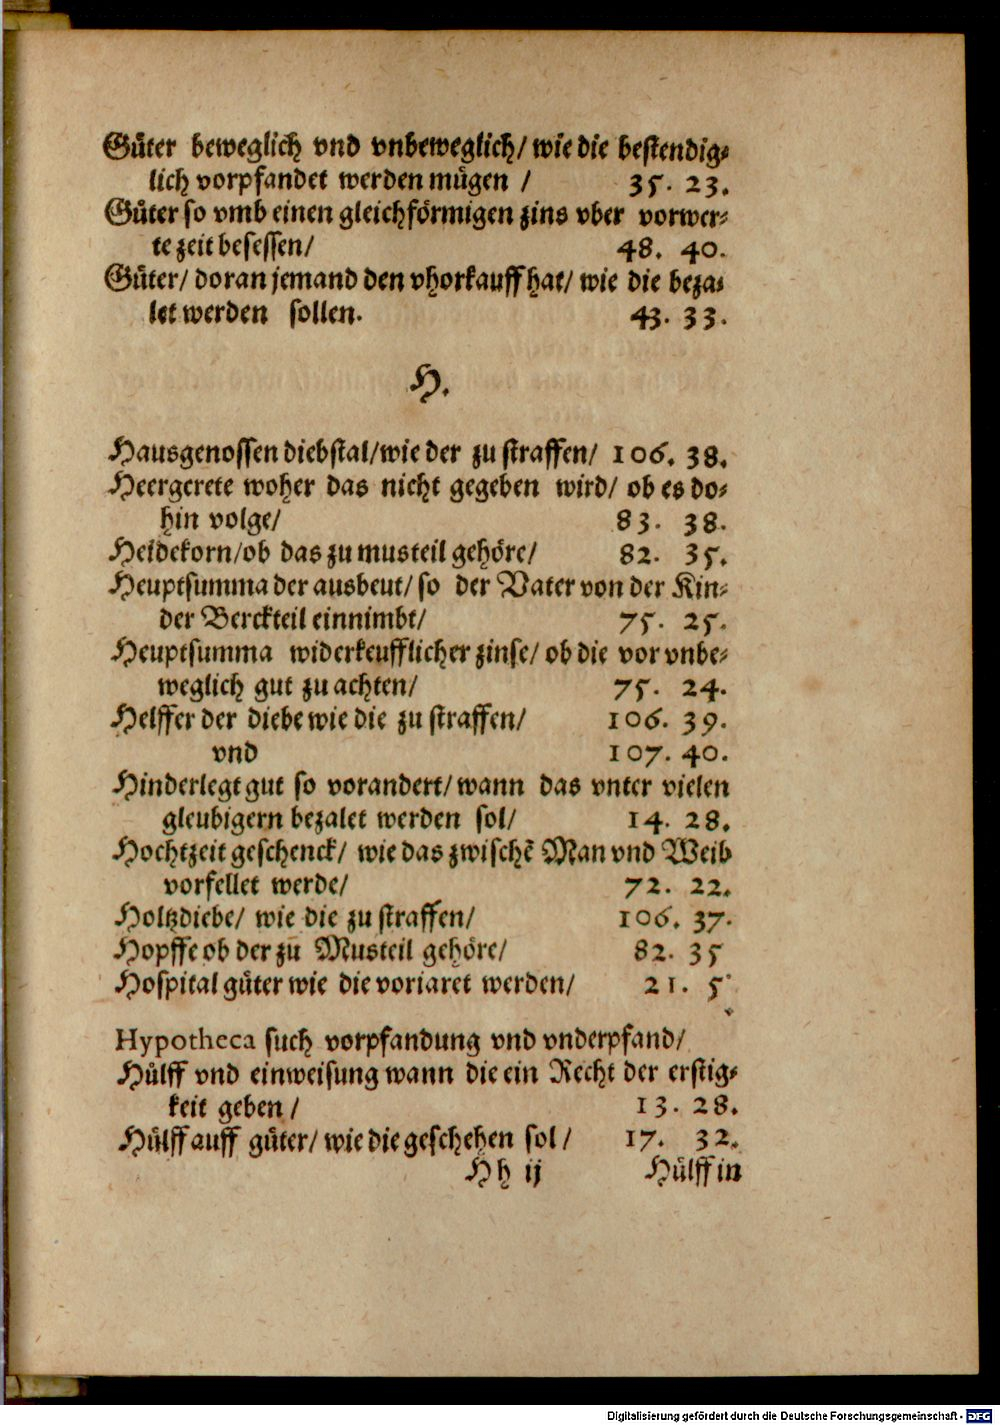 Gůter beweglich vnd vnbeweglich/ wie die bestendig⸗
lich vorpfandet werden můgen / 35. 23.
Gůter so vmb einen gleichförmigen zins vber vorwer⸗
te zeit besessen/ 48. 40.
Gůter/ doran jemand den vhorkauff hat/ wie die beza⸗
let werden sollen. 43. 33.
H.
Hausgenossen diebstal/wie der zu straffen/ 106. 38.
Heergerete woher das nicht gegeben wird/ ob es do⸗
hin volge/ 83. 38.
Heidekorn/ob das zu musteil gehöre/ 82. 35.
Heuptsumma der ausbeut/ so der Vater von der Kin⸗
der Berckteil einnimbt/ 75. 25.
Heuptsumma widerkeufflicher zinse/ ob die vor vnbe⸗
weglich gut zu achten/ 75. 24.
Helffer der diebe wie die zu straffen/ 106. 39.
vnd 107. 40.
Hinderlegt gut so vorandert/ wann das vnter vielen
gleubigern bezalet werden sol/ 14. 28.
Hochtzeit geschenck/ wie das zwischē Man vnd Weib
vorfellet werde/ 72. 22.
Holtzdiebe/ wie die zu straffen/ 106. 37.
Hopffe ob der zu Musteil gehöre/ 82. 35
Hospital gůter wie die voriaret werden/ 21. 5
Hypotheca such vorpfandung vnd vnderpfand/
Hůlff vnd einweisung wann die ein Recht der erstig⸗
keit geben / 13. 28.
Hůlff auff gůter/ wie die geschehen sol / 17. 32.
Hh ij Hůlff in
Digitalisierung gefördert durch die Deutsche Forschungsgemeinschaft - DFG